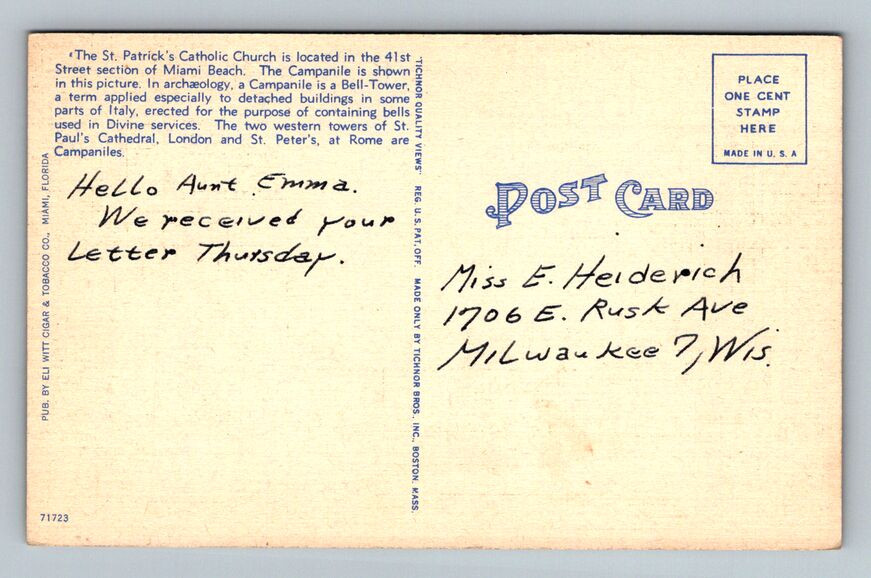 "The St. Patrick's Catholic Church is located in the 41st
Street section of Miami Beach. The Campanile is shown
in this picture. In archæology, a Campanile is a Bell-Tower,
a term applied especially to detached buildings in some
parts of Italy, erected for the purpose of containing bells
used in Divine services. The two western towers of St.
Paul's Cathedral, London and St. Peter's, at Rome are
Campaniles.
Hello Aunt Emma.
We received your
Letter Thursday.
PUB. BY ELI WITT CIGAR & TOBACCO CO., MIAMI, FLORIDA
71723
"TICHNOR QUALITY VIEWS" REG. U. S. PAT. OFF. MADE ONLY BY TICHNOR BROS., INC., BOSTON, MASS.
PLACE
ONE CENT
STAMP
HERE
MADE IN U. S. A
POST CARD
Miss E. Heiderich
1706 E. Rusk Ave
Milwaukee 7, Wis.